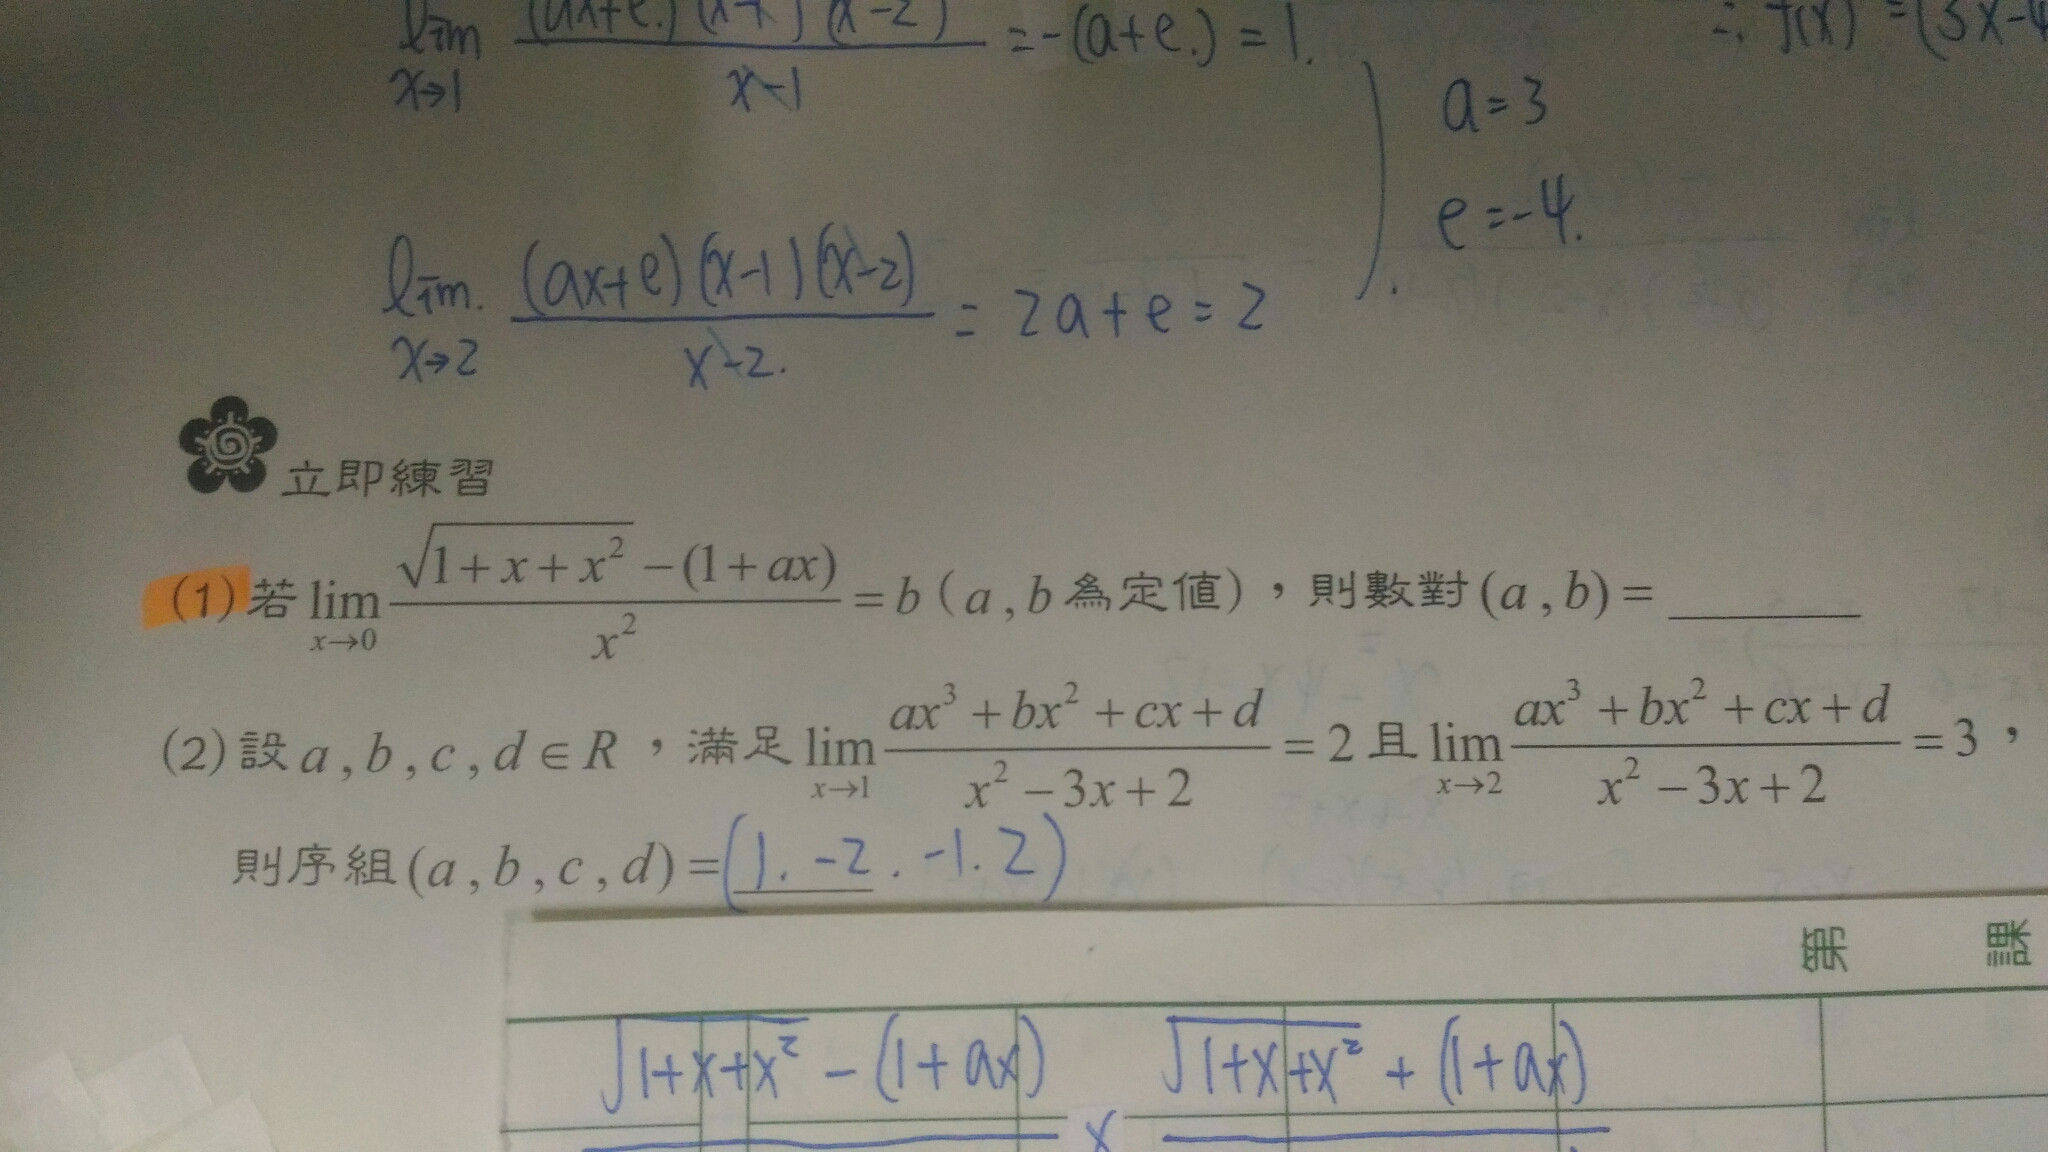 lim (ax+e.)(x-1)(x-2) / x-1 = -(a+e.) = 1.
x→1
∴ f(x) = (3x-4
a=3
e=-4.
lim. (ax+e)(x-1)(x-2) / x-2. = 2a+e=2
x→2
立即練習
(1) 若 lim_{x→0} (√(1+x+x²) -(1+ax)) / x² = b ( a , b 為定值) ,則數對 (a , b) = ______
(2) 設 a , b , c , d ∈ R ,滿足 lim_{x→1} (ax³+bx²+cx+d) / (x²-3x+2) = 2 且 lim_{x→2} (ax³+bx²+cx+d) / (x²-3x+2) = 3 ,
則序組 (a , b , c , d) = (1. -2 . -1. 2)
第 課
√(1+x+x²) - (1+ax) × √(1+x+x²) + (1+ax)